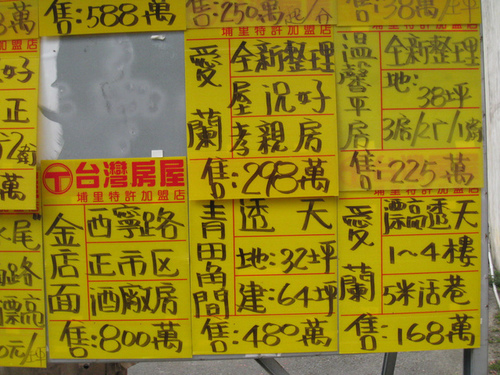 售:588萬
售:250萬起/分
售:38萬/坪
埔里特許加盟店
埔里特許加盟店
好
正
萬
愛蘭
全新整理
屋況好
孝親房
售:298萬
溫馨平房
全新整理
地:38坪
3房/2廳/1衛
售:225萬
台灣房屋
埔里特許加盟店
金店面
西寧路
正市區
酒廠房
售:800萬
青田角間
透天
地:32坪
建:64坪
售:480萬
愛蘭
漂高透天
1~4樓
5米活巷
售:168萬
水尾
路
漂高